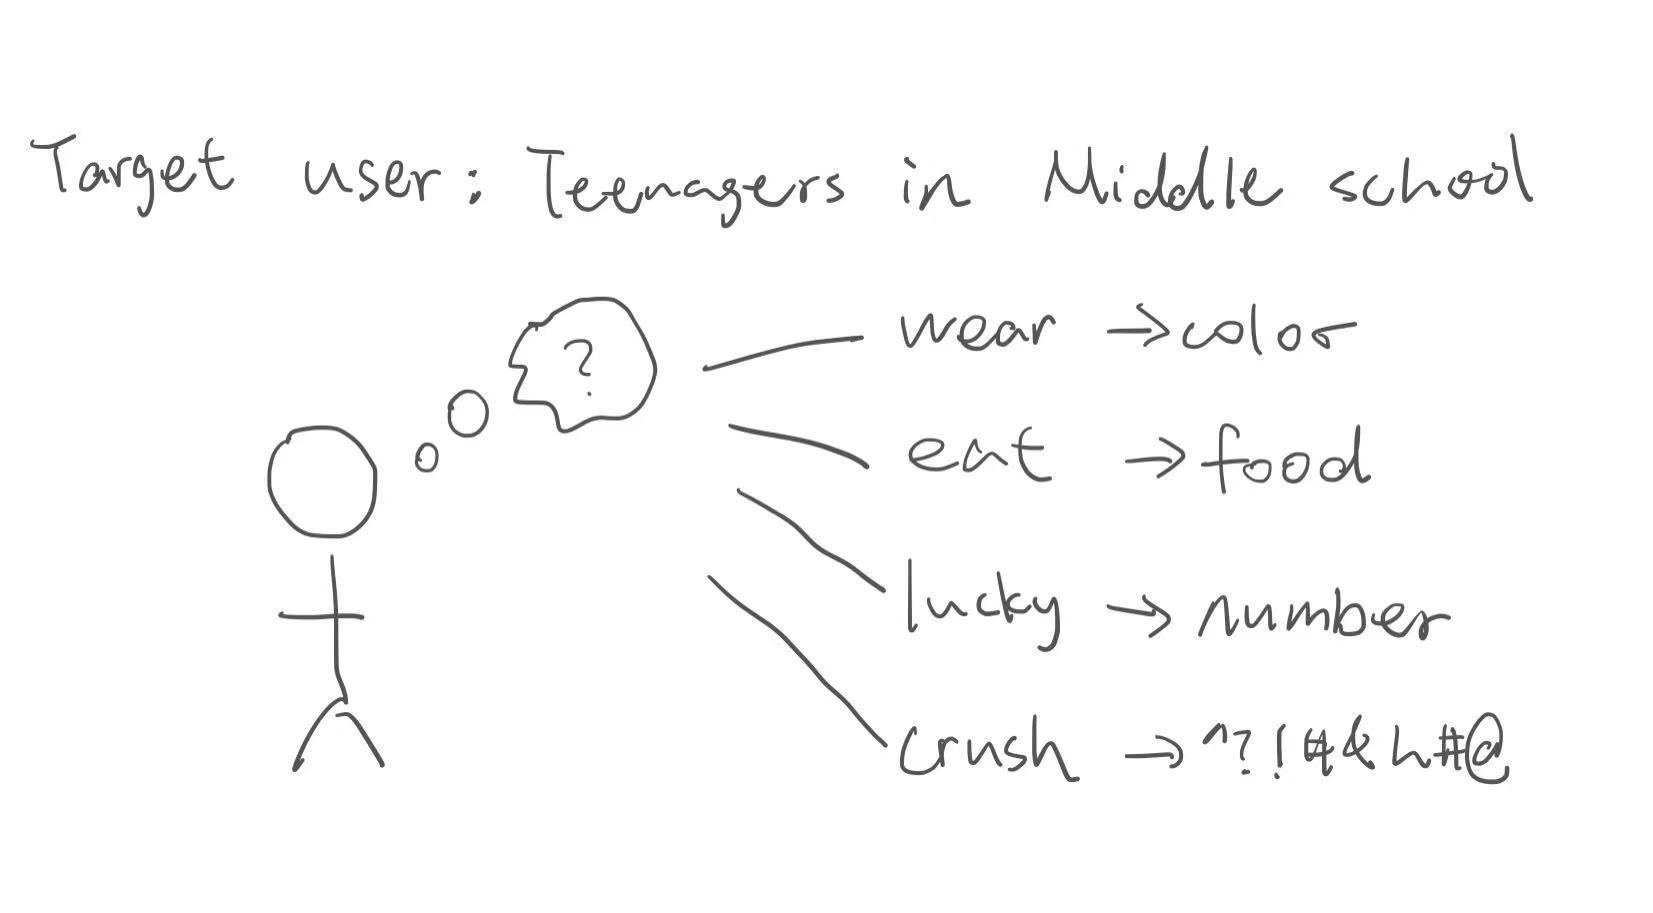 Target user: Teenagers in Middle school
?
wear → color
eat → food
lucky → number
crush → ^?!#&h#@